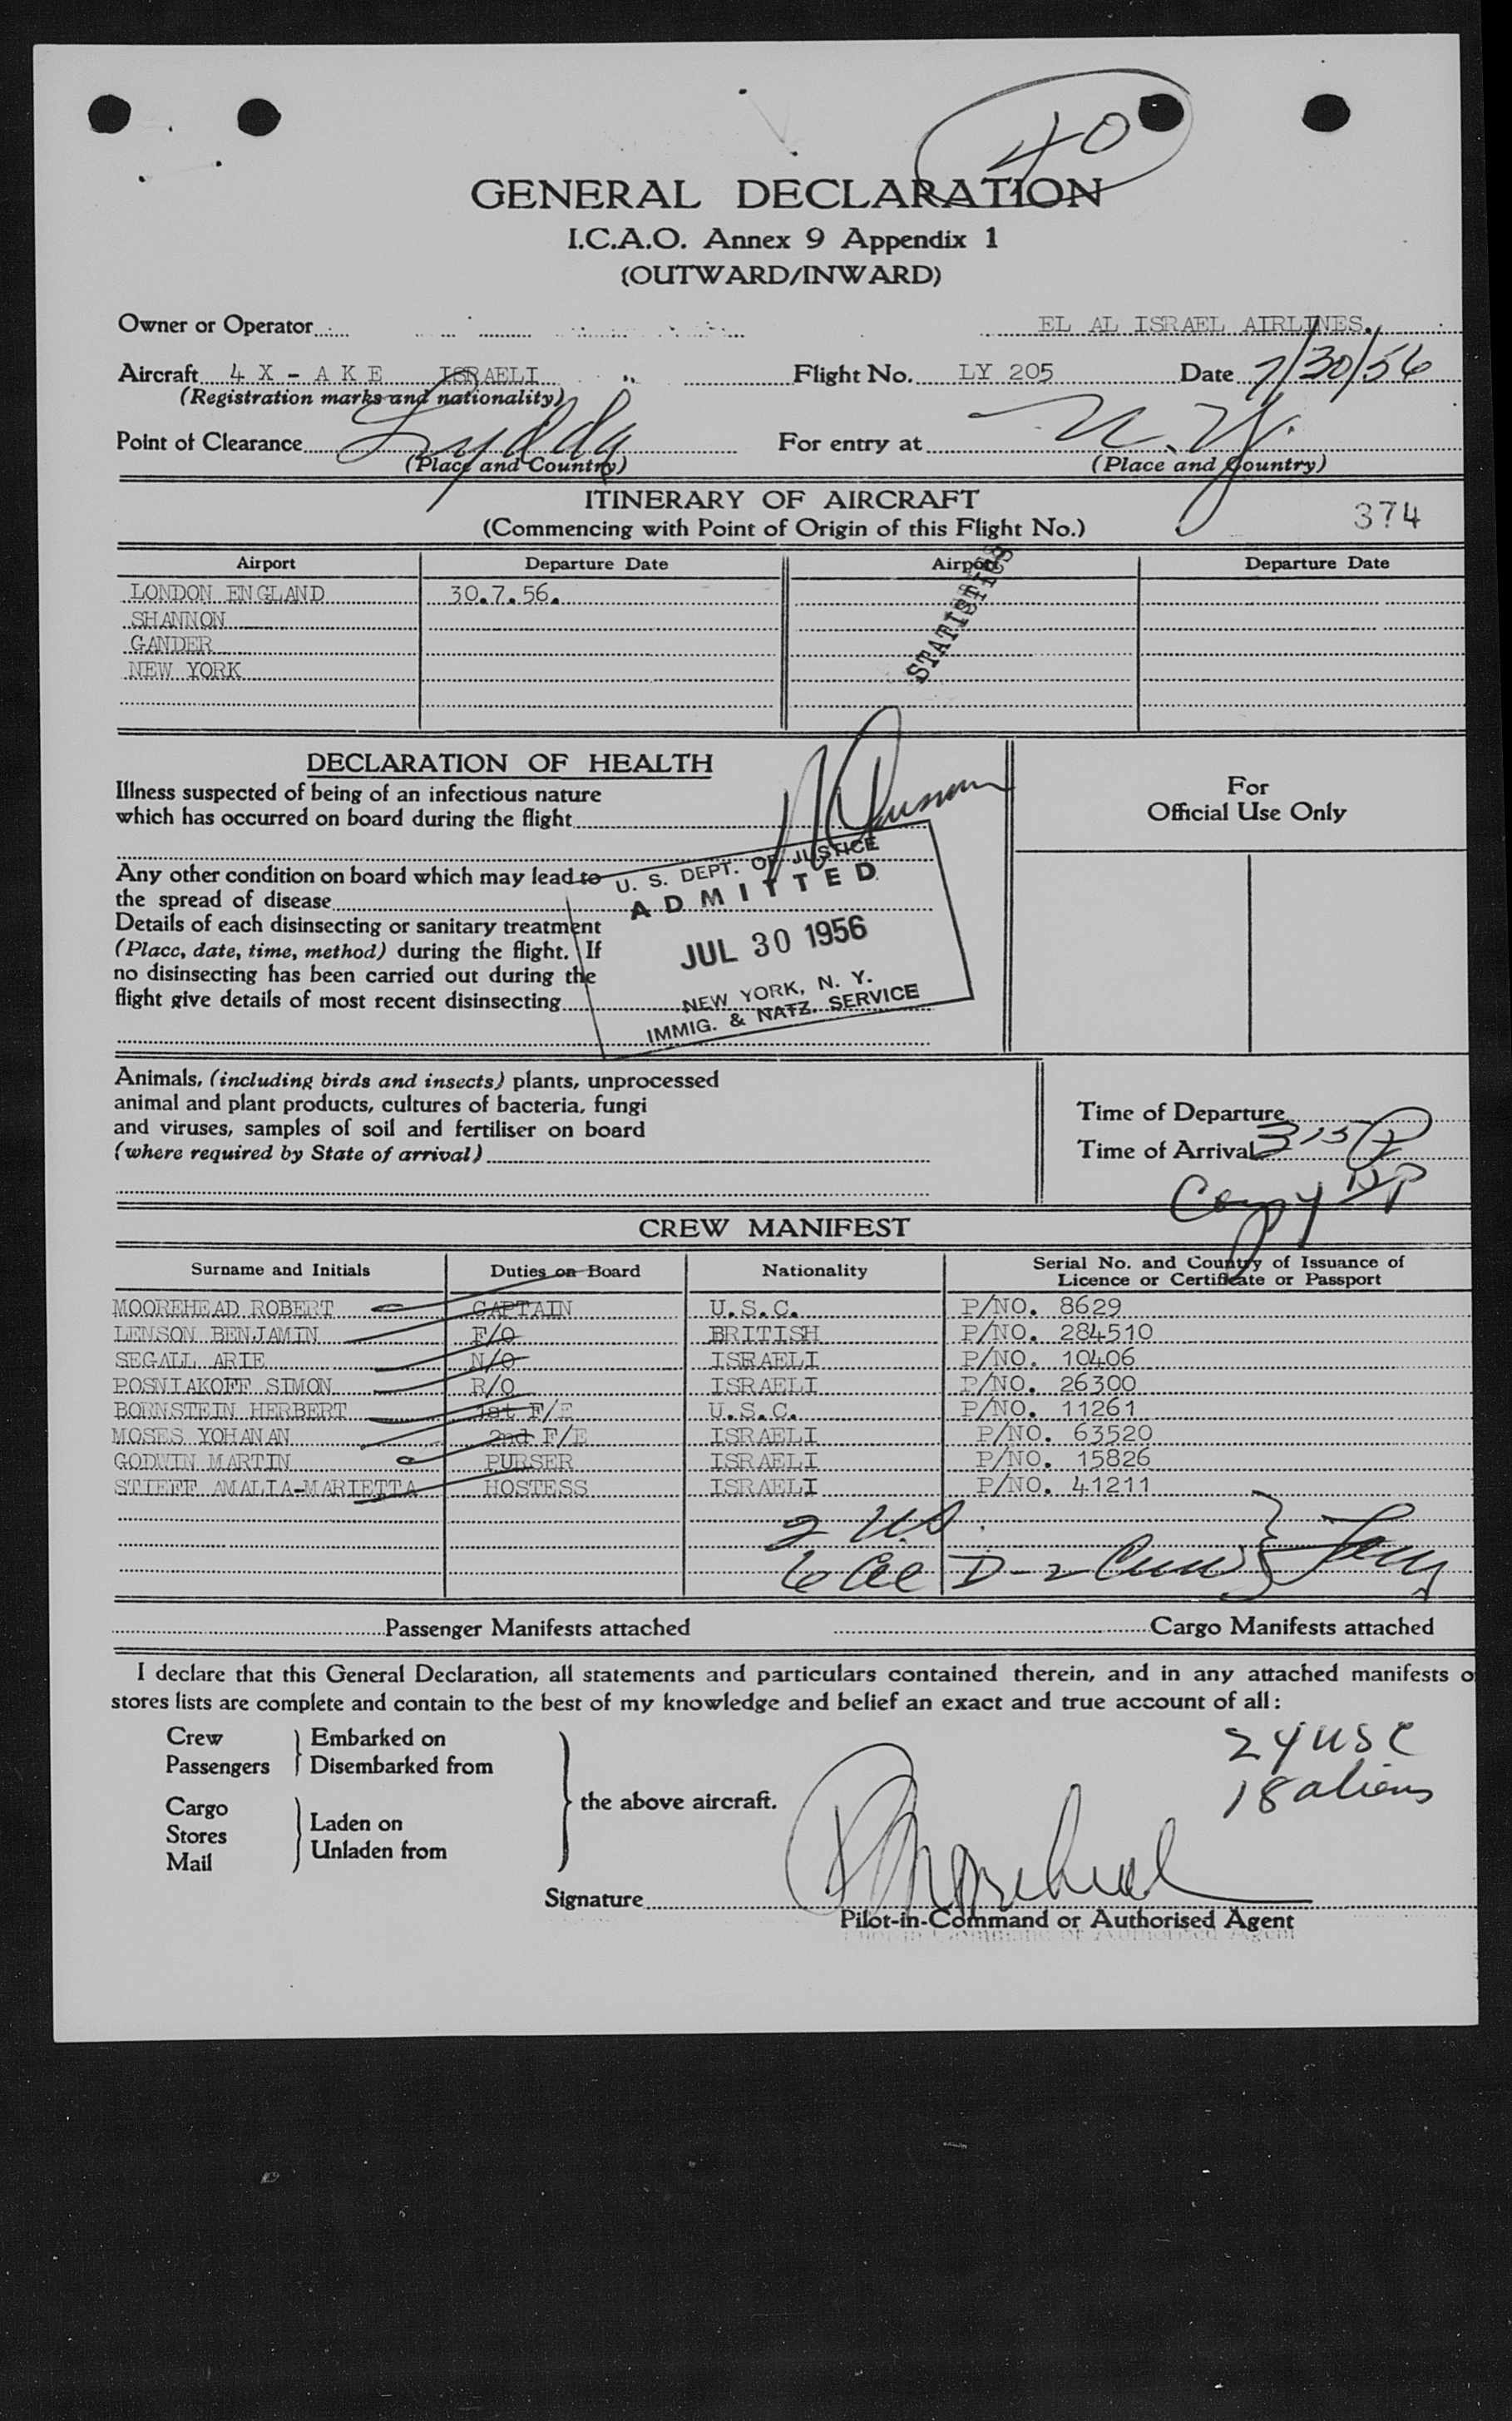 40
GENERAL DECLARATION
I.C.A.O. Annex 9 Appendix 1
(OUTWARD/INWARD)
Owner or Operator EL AL ISRAEL AIRLINES.
Aircraft 4 X - A K E ISRAELI Flight No. LY 205 Date 7/30/56
(Registration marks and nationality)
Point of Clearance Lydda For entry at N.Y.
(Place and Country) (Place and Country)
ITINERARY OF AIRCRAFT
(Commencing with Point of Origin of this Flight No.) 374
Airport Departure Date Airport Departure Date
LONDON ENGLAND 30.7.56.
SHANNON
GANDER
NEW YORK
STATISTICS
DECLARATION OF HEALTH
Illness suspected of being of an infectious nature
which has occurred on board during the flight
For
Official Use Only
Any other condition on board which may lead to
the spread of disease
Details of each disinsecting or sanitary treatment
(Place, date, time, method) during the flight. If
no disinsecting has been carried out during the
flight give details of most recent disinsecting
U. S. DEPT. OF JUSTICE
ADMITTED
JUL 30 1956
NEW YORK, N. Y.
IMMIG. & NATZ. SERVICE
Animals, (including birds and insects) plants, unprocessed
animal and plant products, cultures of bacteria, fungi
and viruses, samples of soil and fertiliser on board
(where required by State of arrival)
Time of Departure
Time of Arrival 315 P
CREW MANIFEST
Surname and Initials Duties on Board Nationality Serial No. and Country of Issuance of
Licence or Certificate or Passport
MOOREHEAD ROBERT CAPTAIN U.S.C. P/NO. 8629
LENSON BENJAMIN F/O BRITISH P/NO. 284510
SEGALL ARIE N/O ISRAELI P/NO. 10406
POSNIAKOFF SIMON R/O ISRAELI P/NO. 26300
BORNSTEIN HERBERT 1st F/E U.S.C. P/NO. 11261
MOSES YOHANAN 2nd F/E ISRAELI P/NO. 63520
GODWIN MARTIN PURSER ISRAELI P/NO. 15826
STIEFF AMALIA-MARIETTA HOSTESS ISRAELI P/NO. 41211
2 U.S.
6 D-2
Passenger Manifests attached Cargo Manifests attached
I declare that this General Declaration, all statements and particulars contained therein, and in any attached manifests o
stores lists are complete and contain to the best of my knowledge and belief an exact and true account of all:
Crew Embarked on
Passengers Disembarked from
the above aircraft.
Cargo
Stores
Mail
Laden on
Unladen from
24 USC
18 aliens
Signature R Moorehead
Pilot-in-Command or Authorised Agent